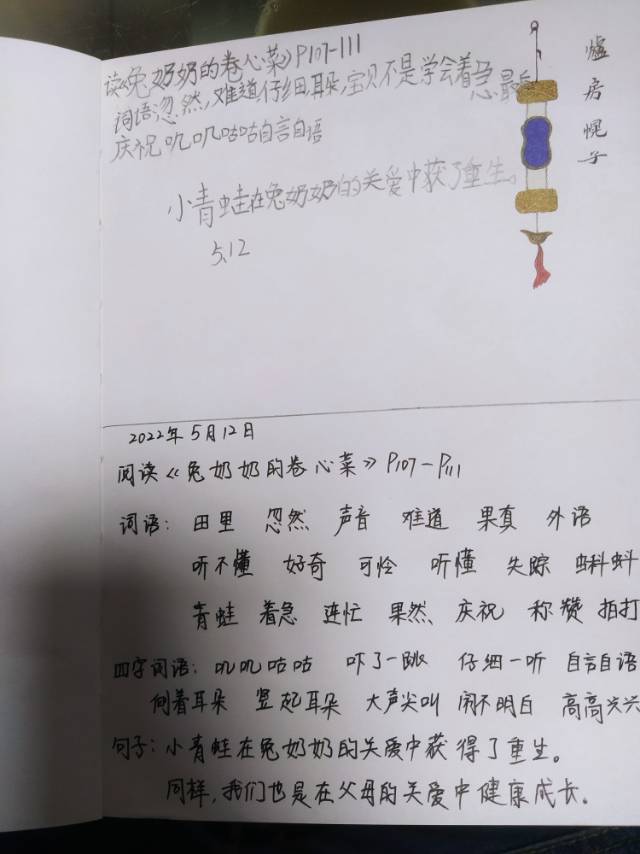 读《兔奶奶的卷心菜》P107-111
词语忽然,难道,仔细,耳朵,宝贝不是学会着急最后
庆祝叽叽咕咕自言自语
小青蛙在兔奶奶的关爱中获了重生。
5.12
爐房幌子
2022年5月12日
阅读《兔奶奶的卷心菜》P107-P111
词语: 田里 忽然 声音 难道 果真 外语
听不懂 好奇 可怜 听懂 失踪 蝌蚪
青蛙 着急 连忙 果然、庆祝 称赞 拍打
四字词语: 叽叽咕咕 吓了一跳 仔细一听 自言自语
侧着耳朵 竖起耳朵 大声尖叫 闹不明白 高高兴兴
句子:小青蛙在兔奶奶的关爱中获得了重生。
同样,我们也是在父母的关爱中健康成长.